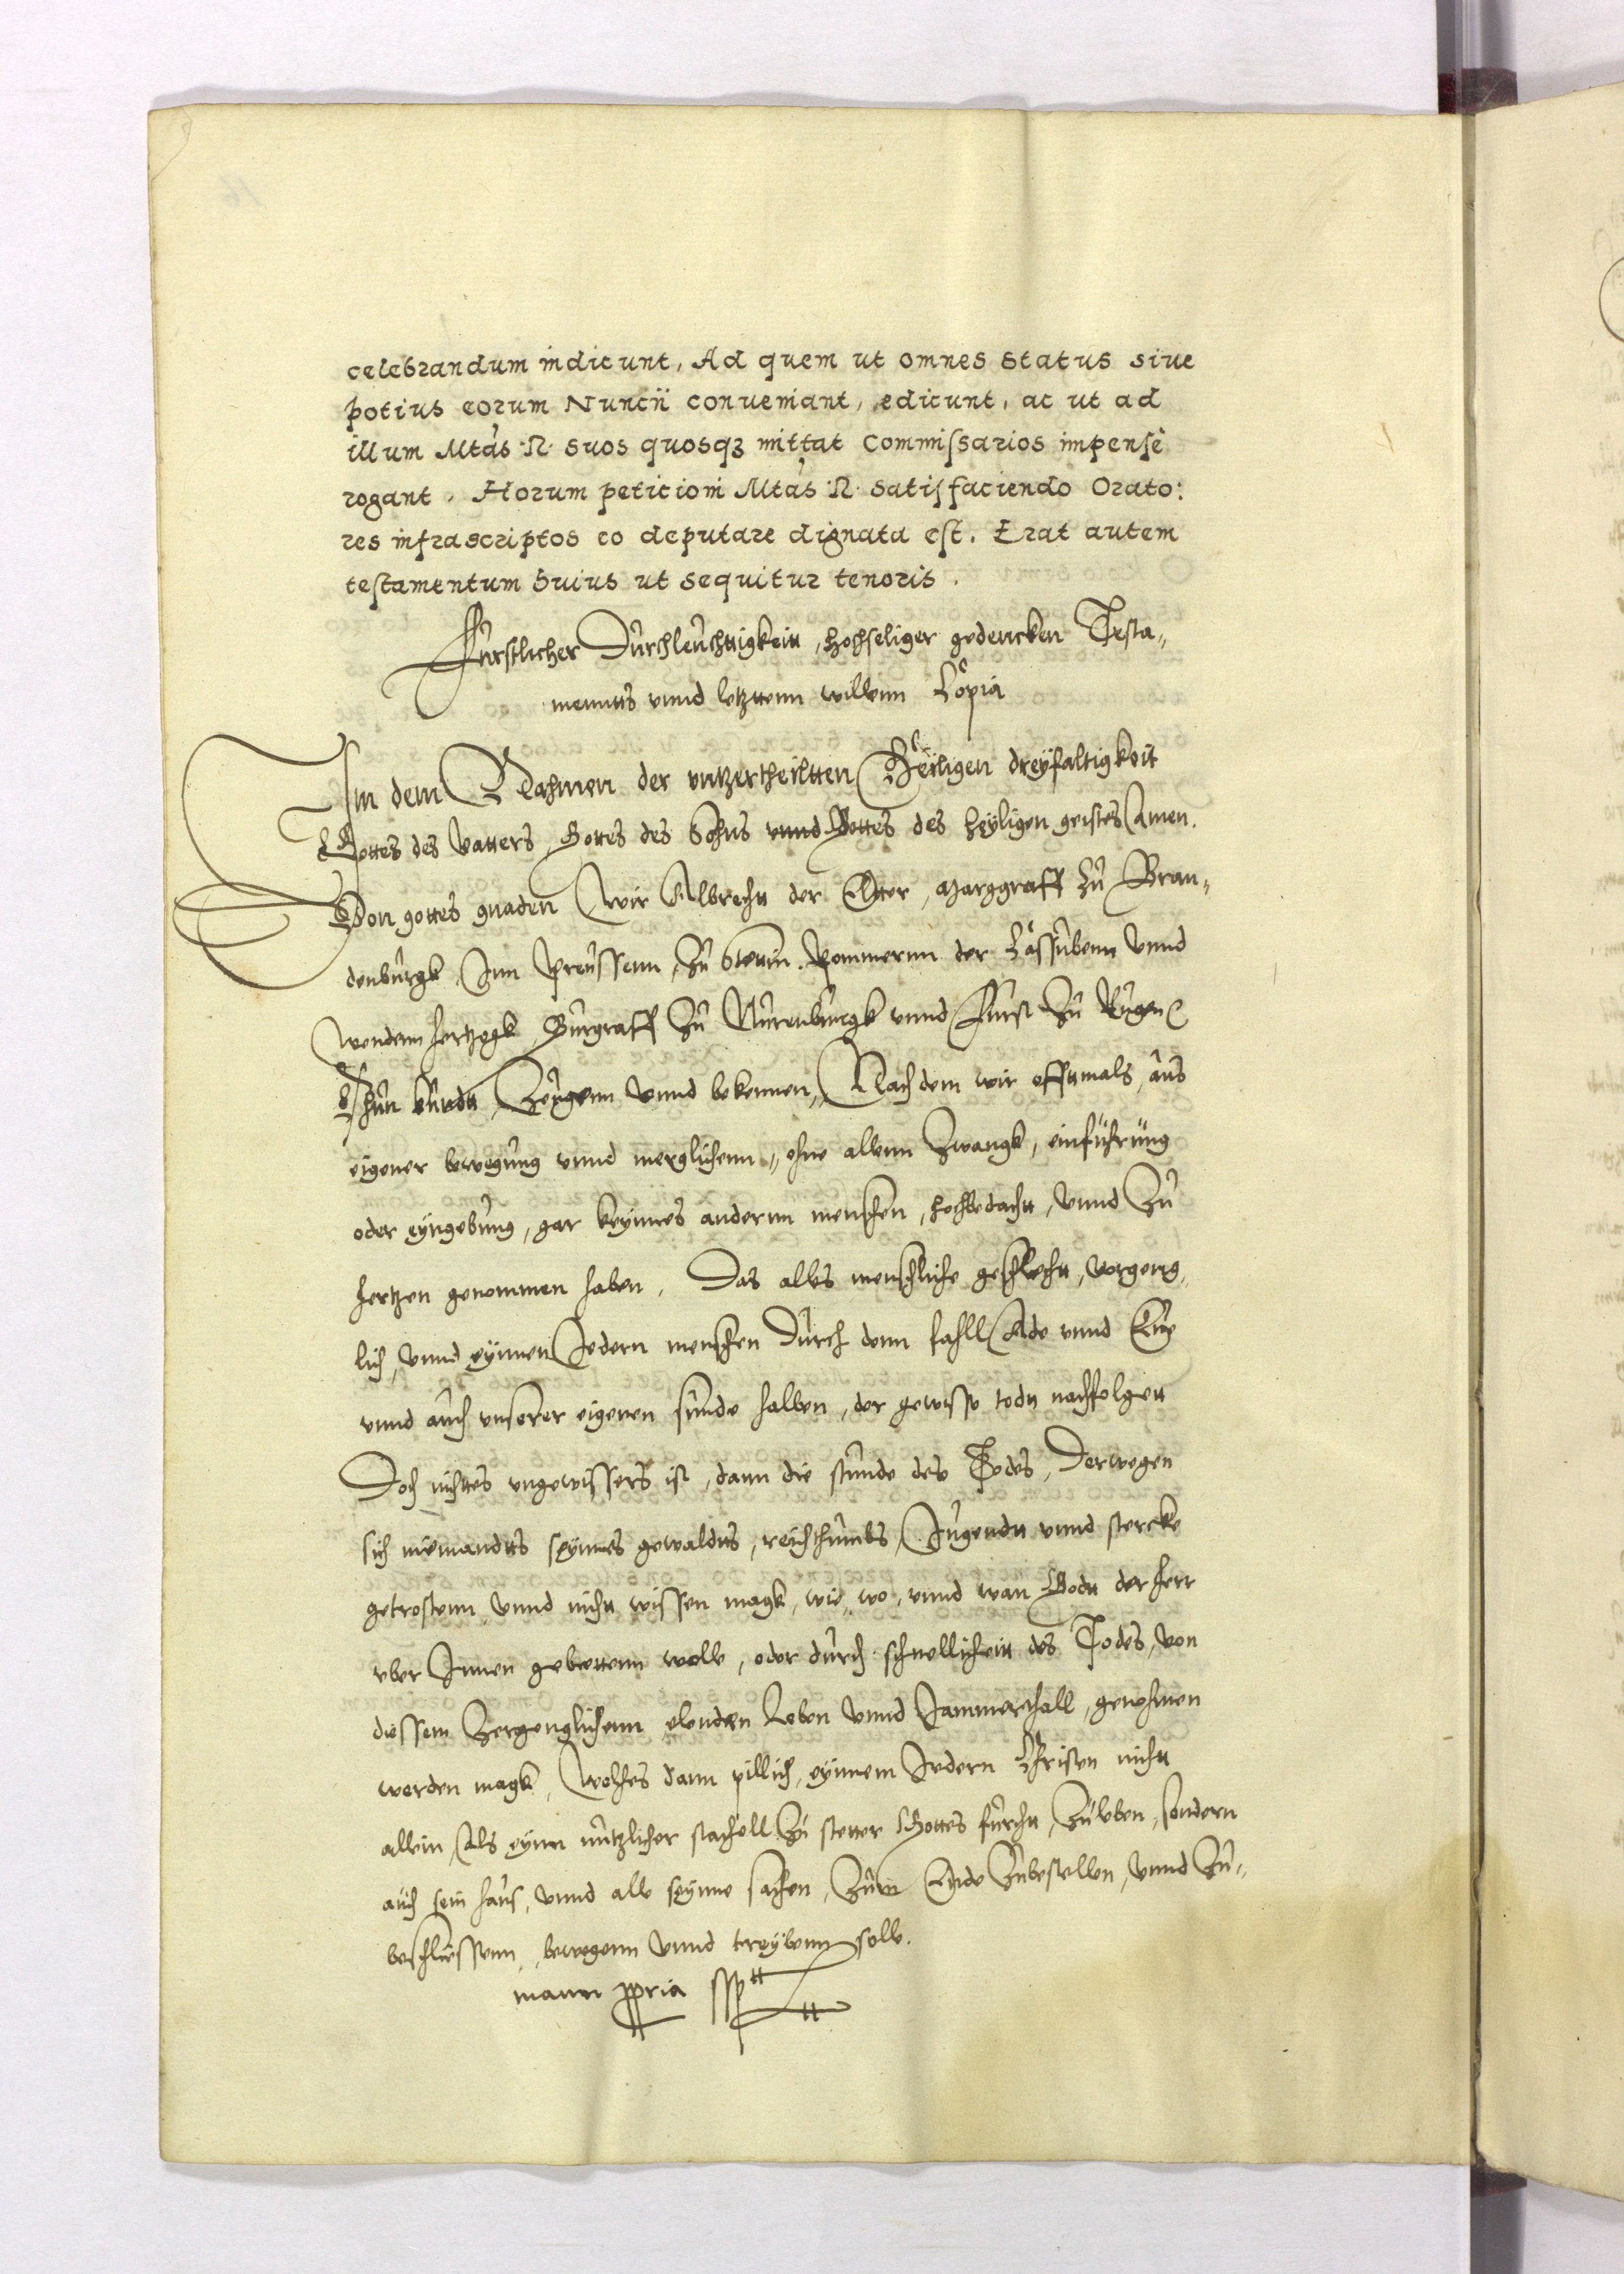 celebrandum indicunt, Ad quem ut omnes status siue
potius eorum Nuncii conueniant, edicunt, ac ut ad
illum Mtas R. suos quosq3 mittat Commissarios impensè
rogant. Horum peticioni Mtas R. satisfaciendo Orato:
res infrascriptos eo deputare dignata est. Erat autem
testamentum huius ut sequitur tenoris.
Fürstlicher Durchleuchtigkeitt, hochseliger gedencken Testa„
mennts vnnd letzttenn willenn Copia
Im dem Nahmen der vntzertheiltten Heiligen dreyfaltigkeit
Gottes des Vatters, Gottes des Sohns vnnd Gottes des heyligen geistes Amen.
Von gottes gnaden Wir Albrecht der Elter, Marggraff zu Bran„
denburgk, Inn Preussenn, zu Stettin. Pommernn der Cassubenn vnnd
Wendenn hertzogk, Burgraff zu Nurenburgk vnnd Furst zu Rugen
Thun kundt, Zeugenn vnnd bekennen, Nach dem wir offtmals, aus
eigener bewegung vnnd menglichenn, ohne allenn zwangk, einführung
oder eyngebung, gar keynnes andernn menschen, hochbedacht, vnnd zu
hertzen genommen haben. Das alles menschliche geschlecht, vorgeng„
lich, vnnd eynnen Jedern menschen durch denn fahll Ade vnnd Eue
vnnd auch vnserer eigenen sunde halben, der gewisse todtt nachfolgett
Doch nichttes vngewissers ist, dann die stunde des Todes, Derwegen
sich niemandtts seynnes gewaldtts, reichthumbs, Jugendtt vnnd stercke
getrostenn, vnnd nicht wissen magk, wie, wo, vnnd wan Godtt der herr
vber Innen gebiettenn wolle, oder durch schnellicheitt des Todes, von
diessem zergenglichenn elenden Leben vnnd Jammerthall, genohmen
werden magk, Wolches dann pillich, eynnem Jedern Christen nicht
allein, Als eynn nutzlicher stachell zu stetter Gottes furcht, zu vben, sondern
auch sein haus, vnnd alle seynne sachen, zum Ende zubestellen, vnnd zu„
beschliessenn, bewegenn vnnd treybenn solle.
manu ppria sspt